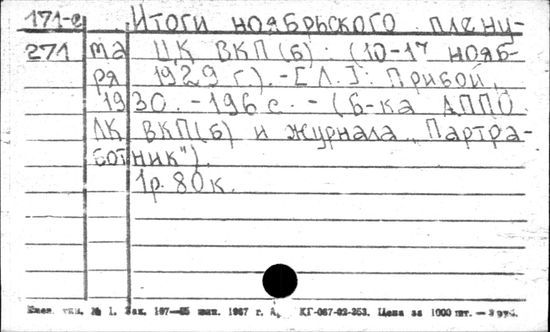 171-е Итоги ноябрьского плену-
271 ма ЦК ВКП(б): (10-17 нояб-
ря 1929 г.). -[Л.]: Прибой,
1930. -196 с. - (Б-ка АППО
ЛК ВКП(б) и журнала „Партра-
ботник").
1р. 80к.
тип. № 1. Зак. 107— 1967 г. А. КГ-067-02-253. Цена за 1000 шт. — 3 руб.